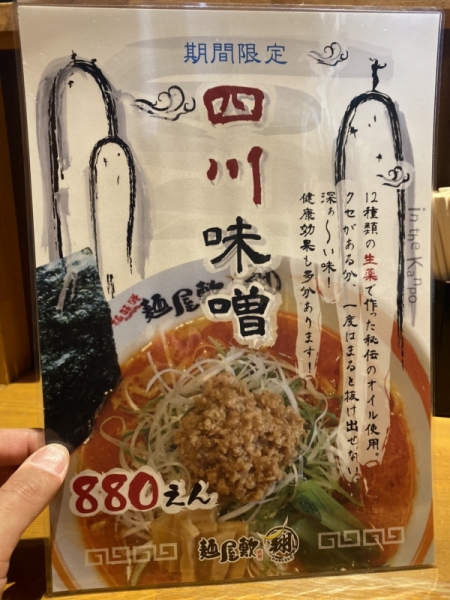 期間限定
四川味噌
in the Kappo
12種類の生薬で作った秘伝のオイル使用。
クセがあるが、一度はまると抜け出せない
深ぁ〜い味！
健康効果も多々あります！
麺屋歓
880えん
麺屋歓 翔